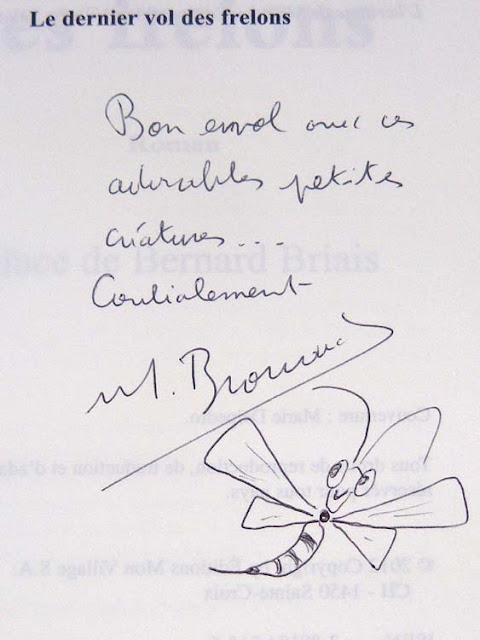 Le dernier vol des frelons
es frelons
Bon envol avec ces
Roman
adorables petites
créatures...
face de Bernard Briais
Cordialement
M.
Couverture : Marie
Tous droits de reproduction, de traduction et d'ada
réservés pour tous pays.
Copyright by Editions Mon Village S.A.
CH - 1450 Sainte-Croix